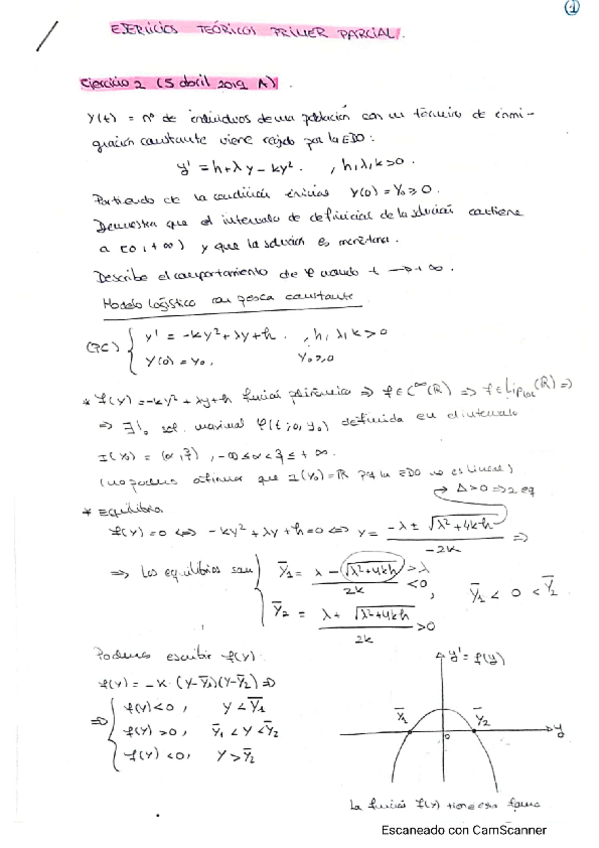 ①
EJERCICIOS TEÓRICOS PRIMER PARCIAL.
Ejercicio 2 (5 abril 2019 A)
Y(t) = nº de individuos de una población con un término de inmi-
gración constante viene regido por la EDO:
y' = h+λy-ky². , h,λ,k>0.
Partiendo de la condición inicial Y(0)=Y₀≥0.
Demuestra que el intervalo de definición de la solución contiene
a [0,+∞) y que la solución es monótona.
Describe el comportamiento de φ cuando t → +∞.
Modelo logístico con pesca constante
(PC) { y' = -ky²+λy+h. , h,λ,k>0
Y(0)=Y₀, Y₀≥0
* f(y)=-ky²+λy+h función polinómica ⇒ f∈C^∞(ℝ) ⇒ f∈Lip_loc(ℝ) ⇒
⇒ ∃! sol. maximal φ(t;0,y₀) definida en el intervalo
I(y₀) = (α,β), -∞≤α<β≤+∞.
(no podemos afirmar que I(y₀)=ℝ la EDO no es lineal)
→ Δ>0 ⇒ 2 eq
* Equilibrios
f(y)=0 ⇔ -ky²+λy+h=0 ⇔ y = (-λ ± √(λ²+4kh))/(-2k) ⇒
⇒ Los equilibrios son { ȳ₁ = (λ - √(λ²+4kh))/(2k) <0 , >λ ȳ₁ < 0 < ȳ₂
ȳ₂ = (λ + √(λ²+4kh))/(2k) >0
Podemos escribir f(y)
f(y) = -k·(y-ȳ₁)(y-ȳ₂) ⇒
⇒ { f(y)<0, y<ȳ₁
f(y)>0, ȳ₁<y<ȳ₂
f(y)<0, y>ȳ₂
y'=f(y)
ȳ₁ ȳ₂ y
0
La función f(y) tiene esa forma
Escaneado con CamScanner